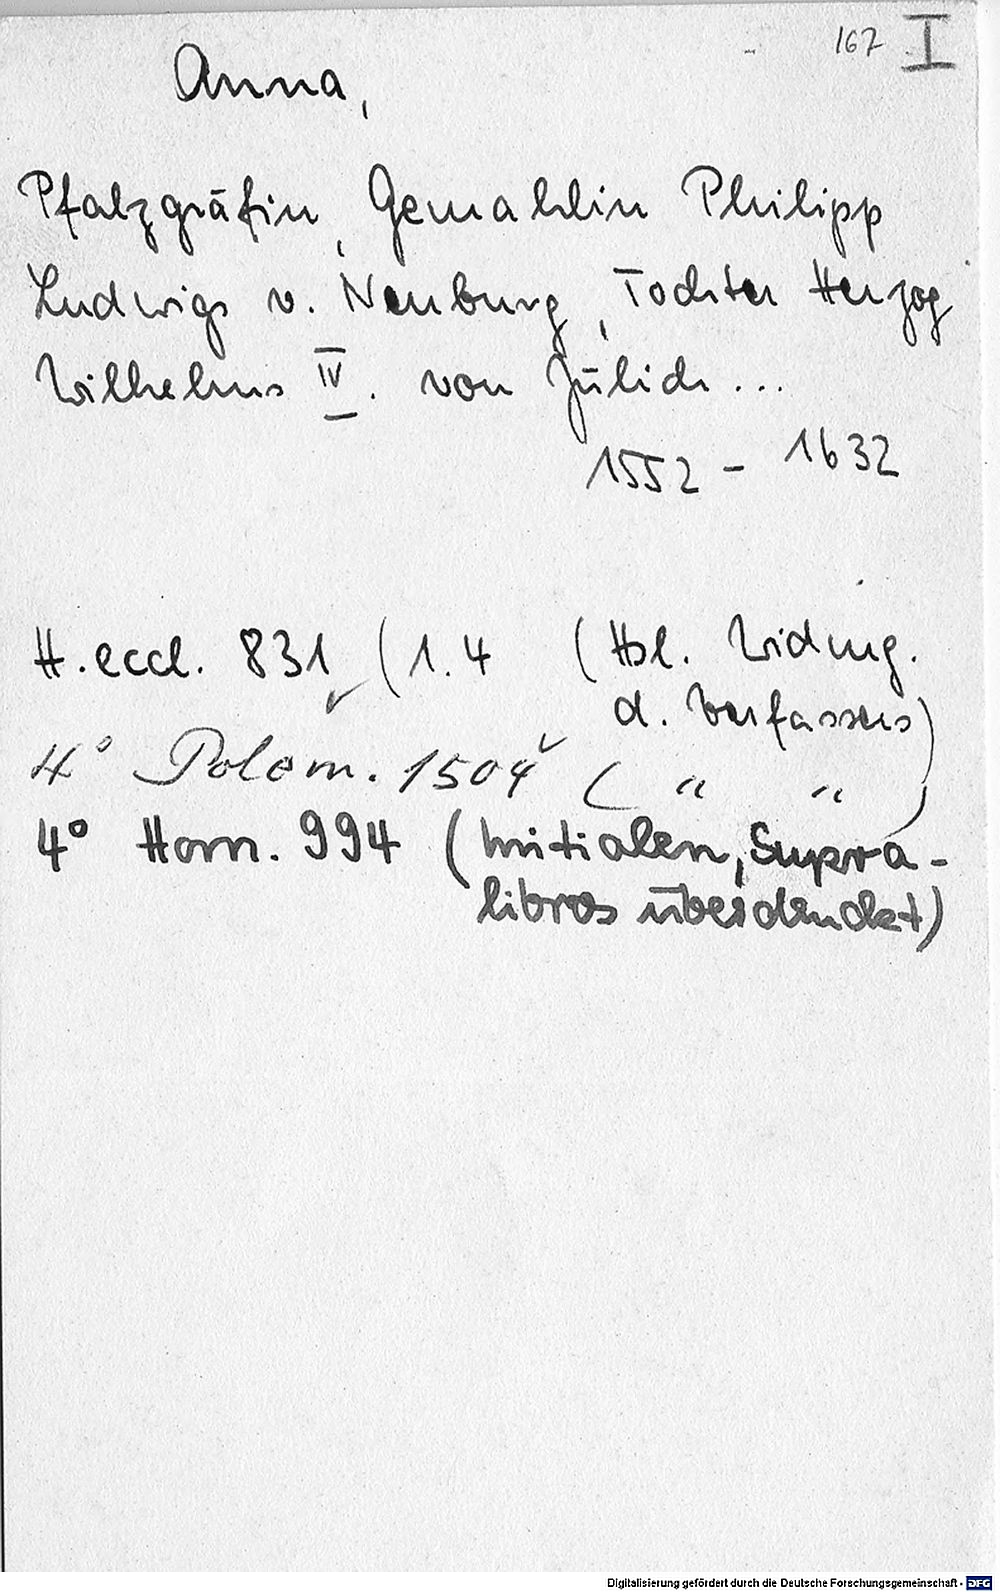 167 I
Anna,
Pfalzgräfin, Gemahlin Philipp
Ludwigs v. Neuburg, Tochter Herzog
Wilhelms IV. von Jülich...
1552 - 1632
H. eccl. 831 (1.4 (Hsl. Widmg.
d. Verfassers)
4° Polem. 1504 ( " " )
4° Hom. 994 (Initialen, Supra-
libros überdruckt)
Digitalisierung gefördert durch die Deutsche Forschungsgemeinschaft - DFG